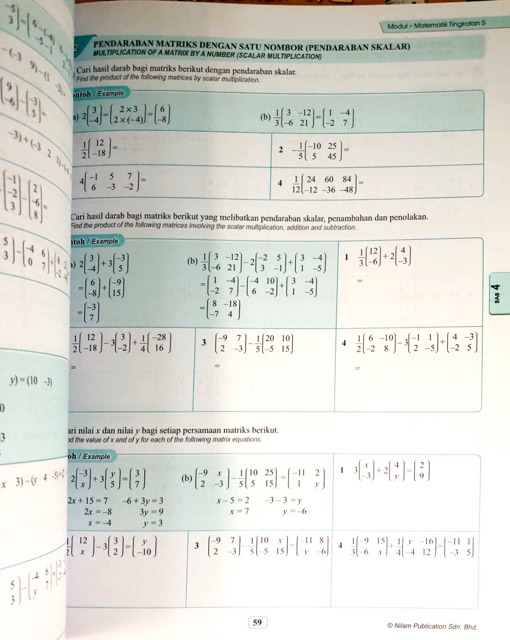 Modul • Matematik Tingkatan 5
PENDARABAN MATRIKS DENGAN SATU NOMBOR (PENDARABAN SKALAR)
MULTIPLICATION OF A MATRIX BY A NUMBER (SCALAR MULTIPLICATION)
Cari hasil darab bagi matriks berikut dengan pendaraban skalar.
Find the product of the following matrices by scalar multiplication.
ntoh / Example
a) 2(3 -4) = (2 × 3 2 × (-4)) = (6 -8)
(b) 1/3(3 -12 -6 21) = (1 -4 -2 7)
1/2(12 -18) =
2 -1/5(-10 25 5 45) =
4(-1 5 7 6 -3 -2) =
4 1/12(24 60 84 -12 -36 -48) =
Cari hasil darab bagi matriks berikut yang melibatkan pendaraban skalar, penambahan dan penolakan.
Find the product of the following matrices involving the scalar multiplication, addition and subtraction.
toh / Example
a) 2(3 -4) + 3(-3 5)
= (6 -8) + (-9 15)
= (-3 7)
(b) 1/3(3 -12 -6 21) - 2(-2 5 3 -1) + (3 -4 1 -5)
= (1 -4 -2 7) - (-4 10 6 -2) + (3 -4 1 -5)
= (8 -18 -7 4)
1 1/3(12 -6) + 2(4 -3)
=
1/2(12 -18) - 3(3 2) + 1/4(-28 16)
=
3 (-9 7 2 -3) - 1/5(20 10 -5 15)
=
4 1/2(6 -10 -2 8) - 3(-1 1 2 -5) + (4 -3 -2 5)
=
BAB 4
ari nilai x dan nilai y bagi setiap persamaan matriks berikut.
nd the value of x and of y for each of the following matrix equations.
oh / Example
2(-3 x) + 3(y 5) = (3 7)
2x + 15 = 7 -6 + 3y = 3
2x = -8 3y = 9
x = -4 y = 3
(b) (-9 x 2 -3) - 1/5(10 25 5 15) = (-11 2 1 y)
x - 5 = 2 -3 - 3 = y
x = 7 y = -6
1 3(x -3) + 2(4 y) = (2 9)
1/2(12 x) - 3(3 2) = (y -10)
3 (-9 7 2 -3) - 1/5(10 x -5 15) = (-11 8 y -6)
4 1/3(-9 15 -6 x) + 1/4(y -16 -4 12) = (-11 1 -3 5)
y) = (10 -3)
59
© Nilam Publication Sdn. Bhd.